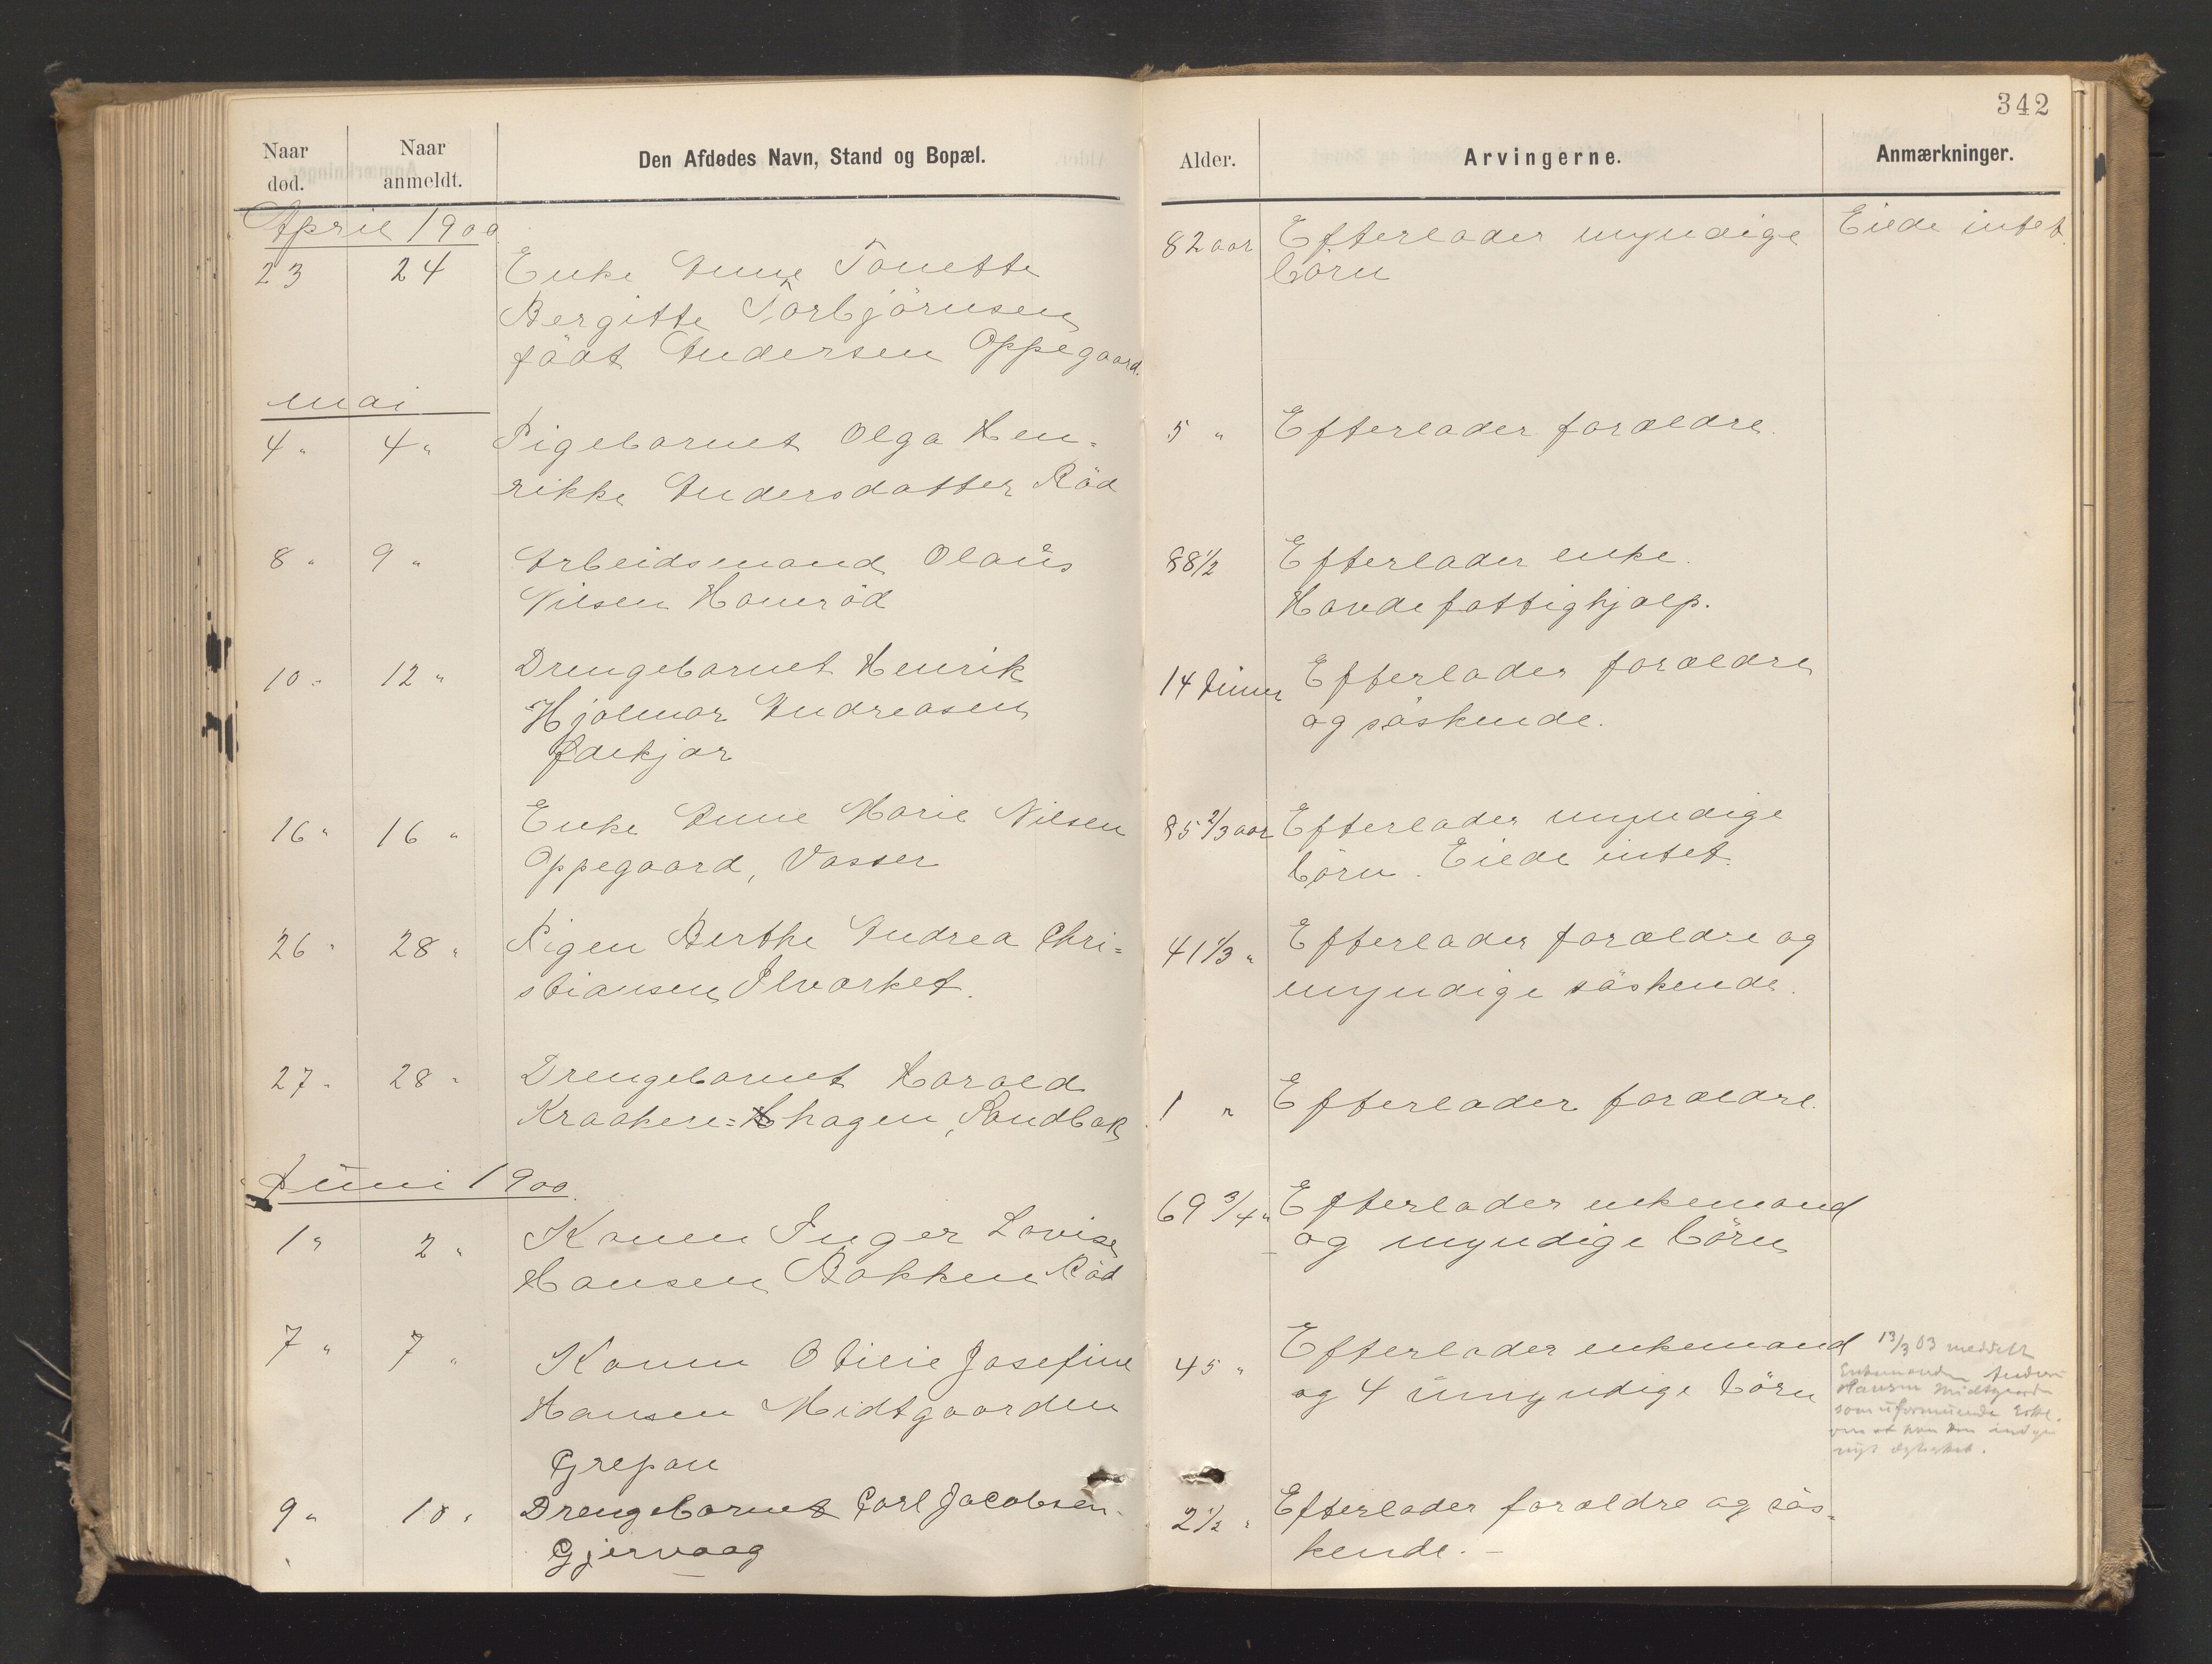 342
Naar død.
Naar anmeldt.
Den Afdødes Navn, Stand og Bopæl.
Alder.
Arvingerne.
Anmærkninger.
April 1900
23 24 Enke Anne Tonette
Bergitte Torbjörnsen
födt Andersen Oppegaard.
82 aar Efterlader myndige
börn
Eiede intet.
mai
4 " 4 " Pigebarnet Olga Hen=
rikke Andersdatter Röd
5 " Efterlader forældre.
8 " 9 " Arbeidsmand Olaus
Nilsen Hamröd
88 1/2 Efterlader enke.
Havde fattighjælp.
10 " 12 " Drengebarnet Henrik
Hjalmar Andreasen
Ødekjær
14 timer Efterlader forældre
og söskende.
16 " 16 " Enke Anne Marie Nilsen
Oppegaard, Vasser
85 2/3 aar Efterlader myndige
börn. Eiede intet.
26 " 28 " Pigen Berthe Andrea Chri=
stiansen, Ilværket.
41 1/3 " Efterlader forældre og
myndige söskende.
27 " 28 " Drengebarnet Harald
Kraakere=hagen, Sandbæk
1 " Efterlader forældre.
Juni 1900.
1 " 2 " Konen Inger Lovise
Hansen Bakken Röd
69 3/4 " Efterlader enkemand
og myndige börn
7 " 7 " Konen Otilie Josefine
Hansen Midtgaarden
Grepan
45 " Efterlader enkemand
og 4 umyndige börn
13/3 03 meddelt
Enkemanden
Hansen Midtgaarden
som uformuende
nyt ægteskab.
9 " 10 " Drengebarnet Carl Jacobsen.
Gjervaag
2 1/2 " Efterlader forældre og sös=
kende. –